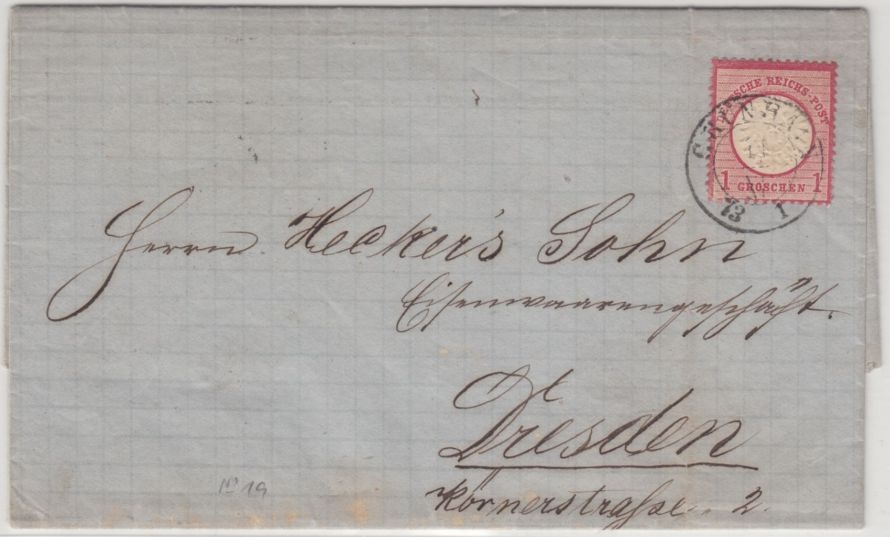 DEUTSCHE REICHS-POST
1 GROSCHEN 1
73 1
Herrn Hecker's Sohn
Eisenwaarengeschäft.
Dresden
Körnerstraße. 2.
No 19